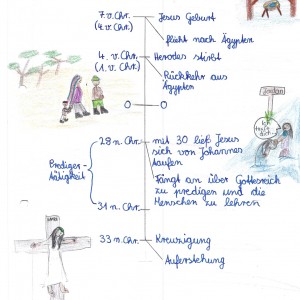 7. v. Chr.
(4. v. Chr.)
Jesus Geburt
flieht nach Ägypten
4. v. Chr.
(1. v. Chr.)
Herodes stirbt
Rückkehr aus
Ägypten
0 0
Jordan
Ich
taufe
28 n. Chr.
mit 30 ließ Jesus
sich von Johannes
taufen
Prediger-
tätigkeit
Fängt an über Gottesreich
zu predigen und die
Menschen zu lehren
31 n. Chr.
33 n. Chr.
Kreuzigung
Auferstehung